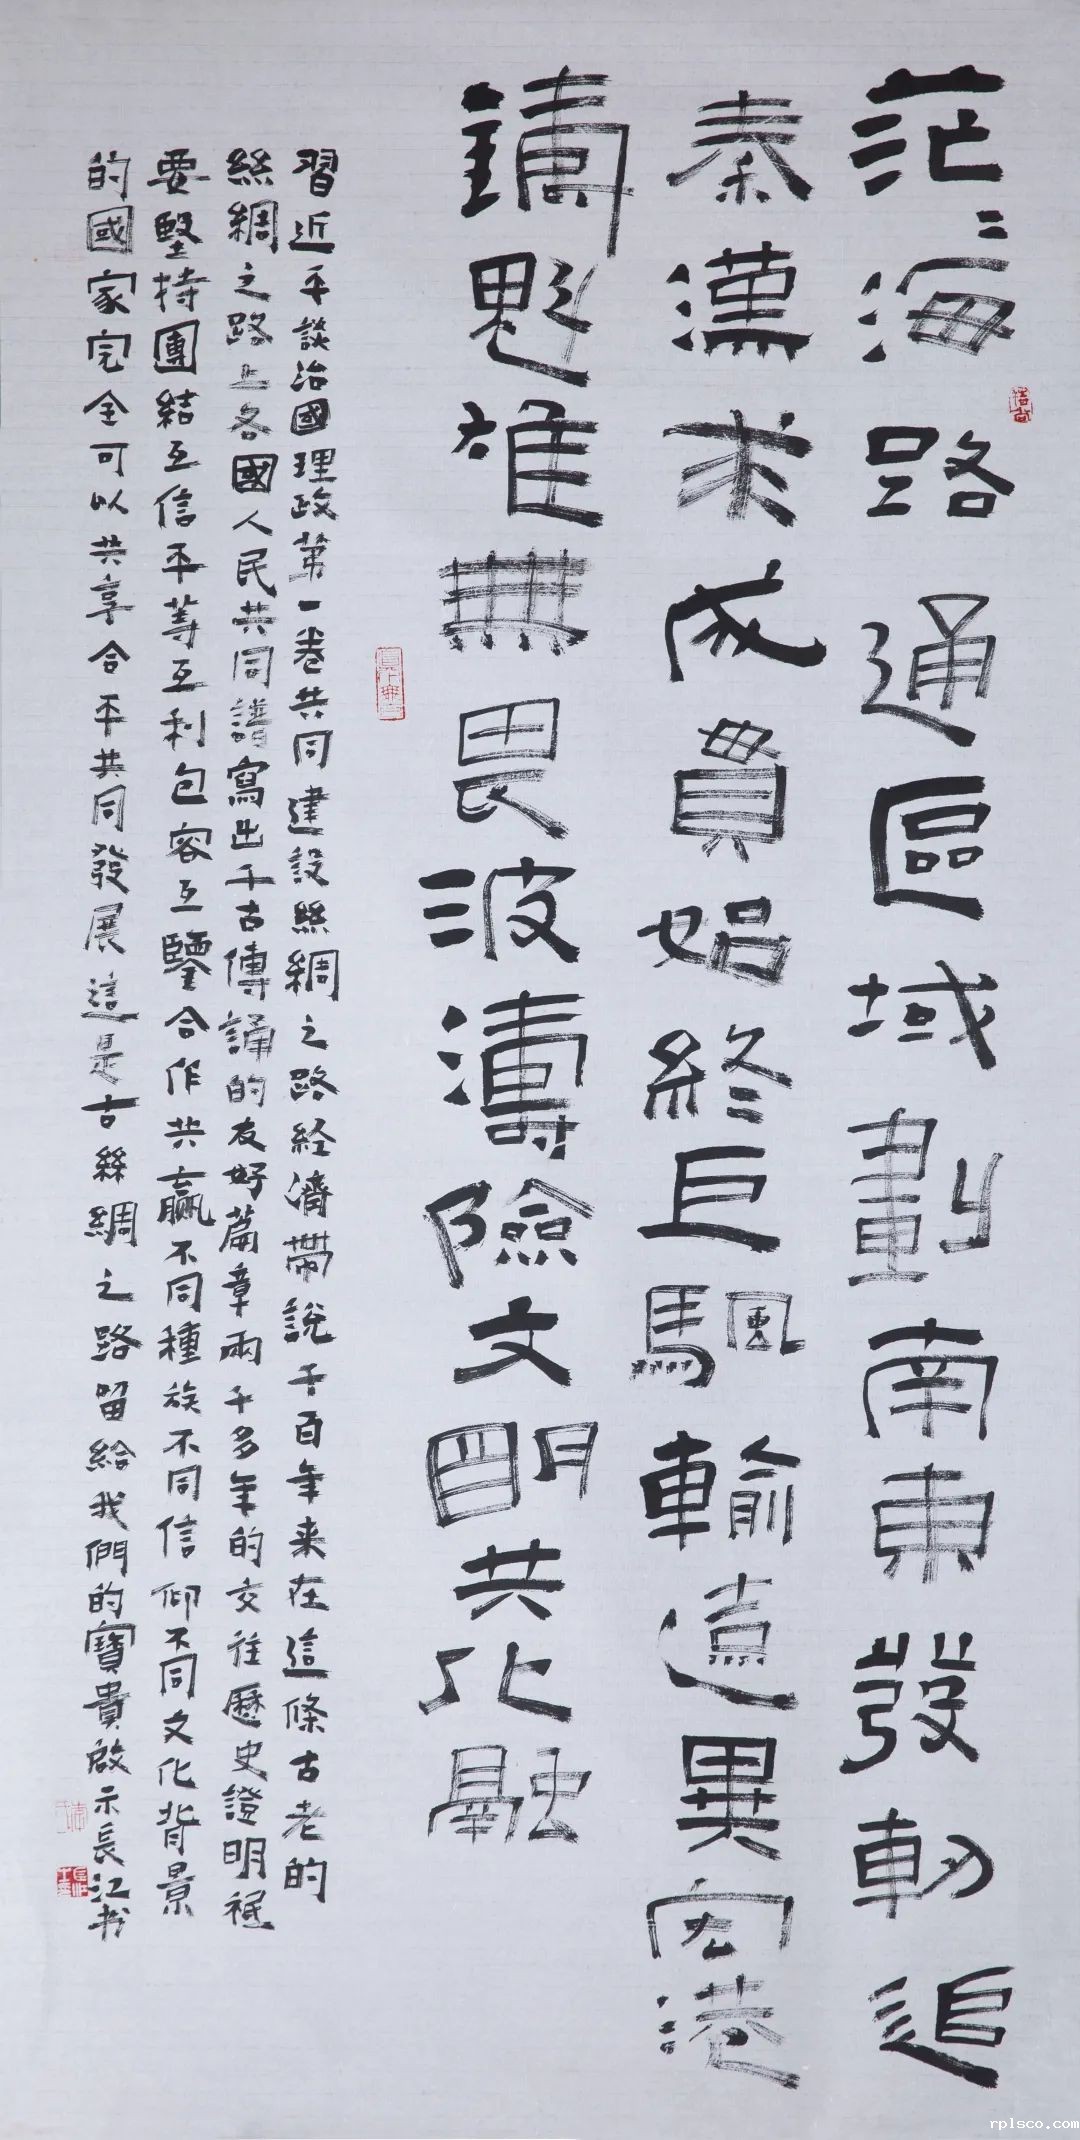 茫〻海路通區域劃南東發軔追
秦漢求成貫始終巨颿輸遠異宏港
鑄魁雄無畏波濤險文明共化融
習近平談治國理政第一卷共同建設絲綢之路経濟帶說千百年来在這條古老的
絲綢之路上各國人民共同譜寫出千古傳誦的友好篇章兩千多年的交往歷史證明祗
要堅持團結互信平等互利包容互鑒合作共贏不同種族不同信仰不同文化背景
的國家完全可以共享合平共同發展這是古絲綢之路留給我們的寶貴啟示長江书
rplsco.com